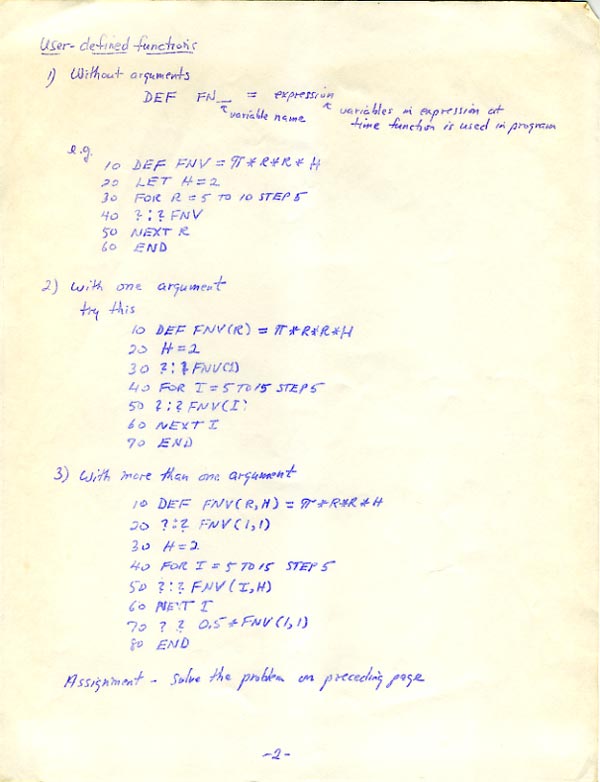 User-defined functions
1) Without arguments
DEF FN__ = expression
variable name
variables in expression at
time function is used in program
e.g.
10 DEF FNV = π*R*R*H
20 LET H=2
30 FOR R=5 TO 10 STEP 5
40 ?:? FNV
50 NEXT R
60 END
2) With one argument
try this
10 DEF FNV(R) = π*R*R*H
20 H=2
30 ?:? FNV(1)
40 FOR I=5 TO 15 STEP 5
50 ?:? FNV(I)
60 NEXT I
70 END
3) With more than one argument
10 DEF FNV(R,H) = π*R*R*H
20 ?:? FNV(1,1)
30 H=2
40 FOR I=5 TO 15 STEP 5
50 ?:? FNV(I,H)
60 NEXT I
70 ? ? 0.5*FNV(1,1)
80 END
Assignment - Solve the problem on preceding page
-2-